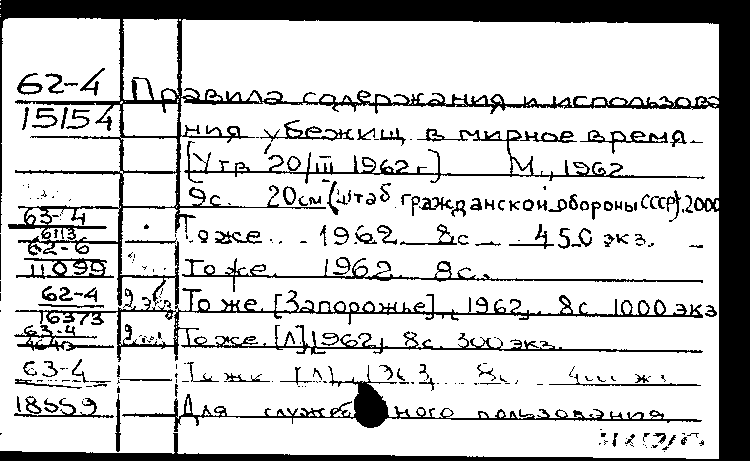 62-4 Правила содержания и использова
15154 ния убежищ в мирное время.
[Утв. 20/III 1962 г.] М., 1962
9с. 20см (Штаб гражданской обороны СССР). 2000
63-4
6113 То же. 1962. 8с. 450 экз.
62-6
11099 То же. 1962. 8с.
62-4 2 экз. То же. [Запорожье], 1962, 8с. 1000 экз
16373
63-4
4640 2 экз. То же. [Л], 1962, 8с. 300 экз.
63-4 То же [Л], 1963, 8с.
18559 Для служебного пользования.